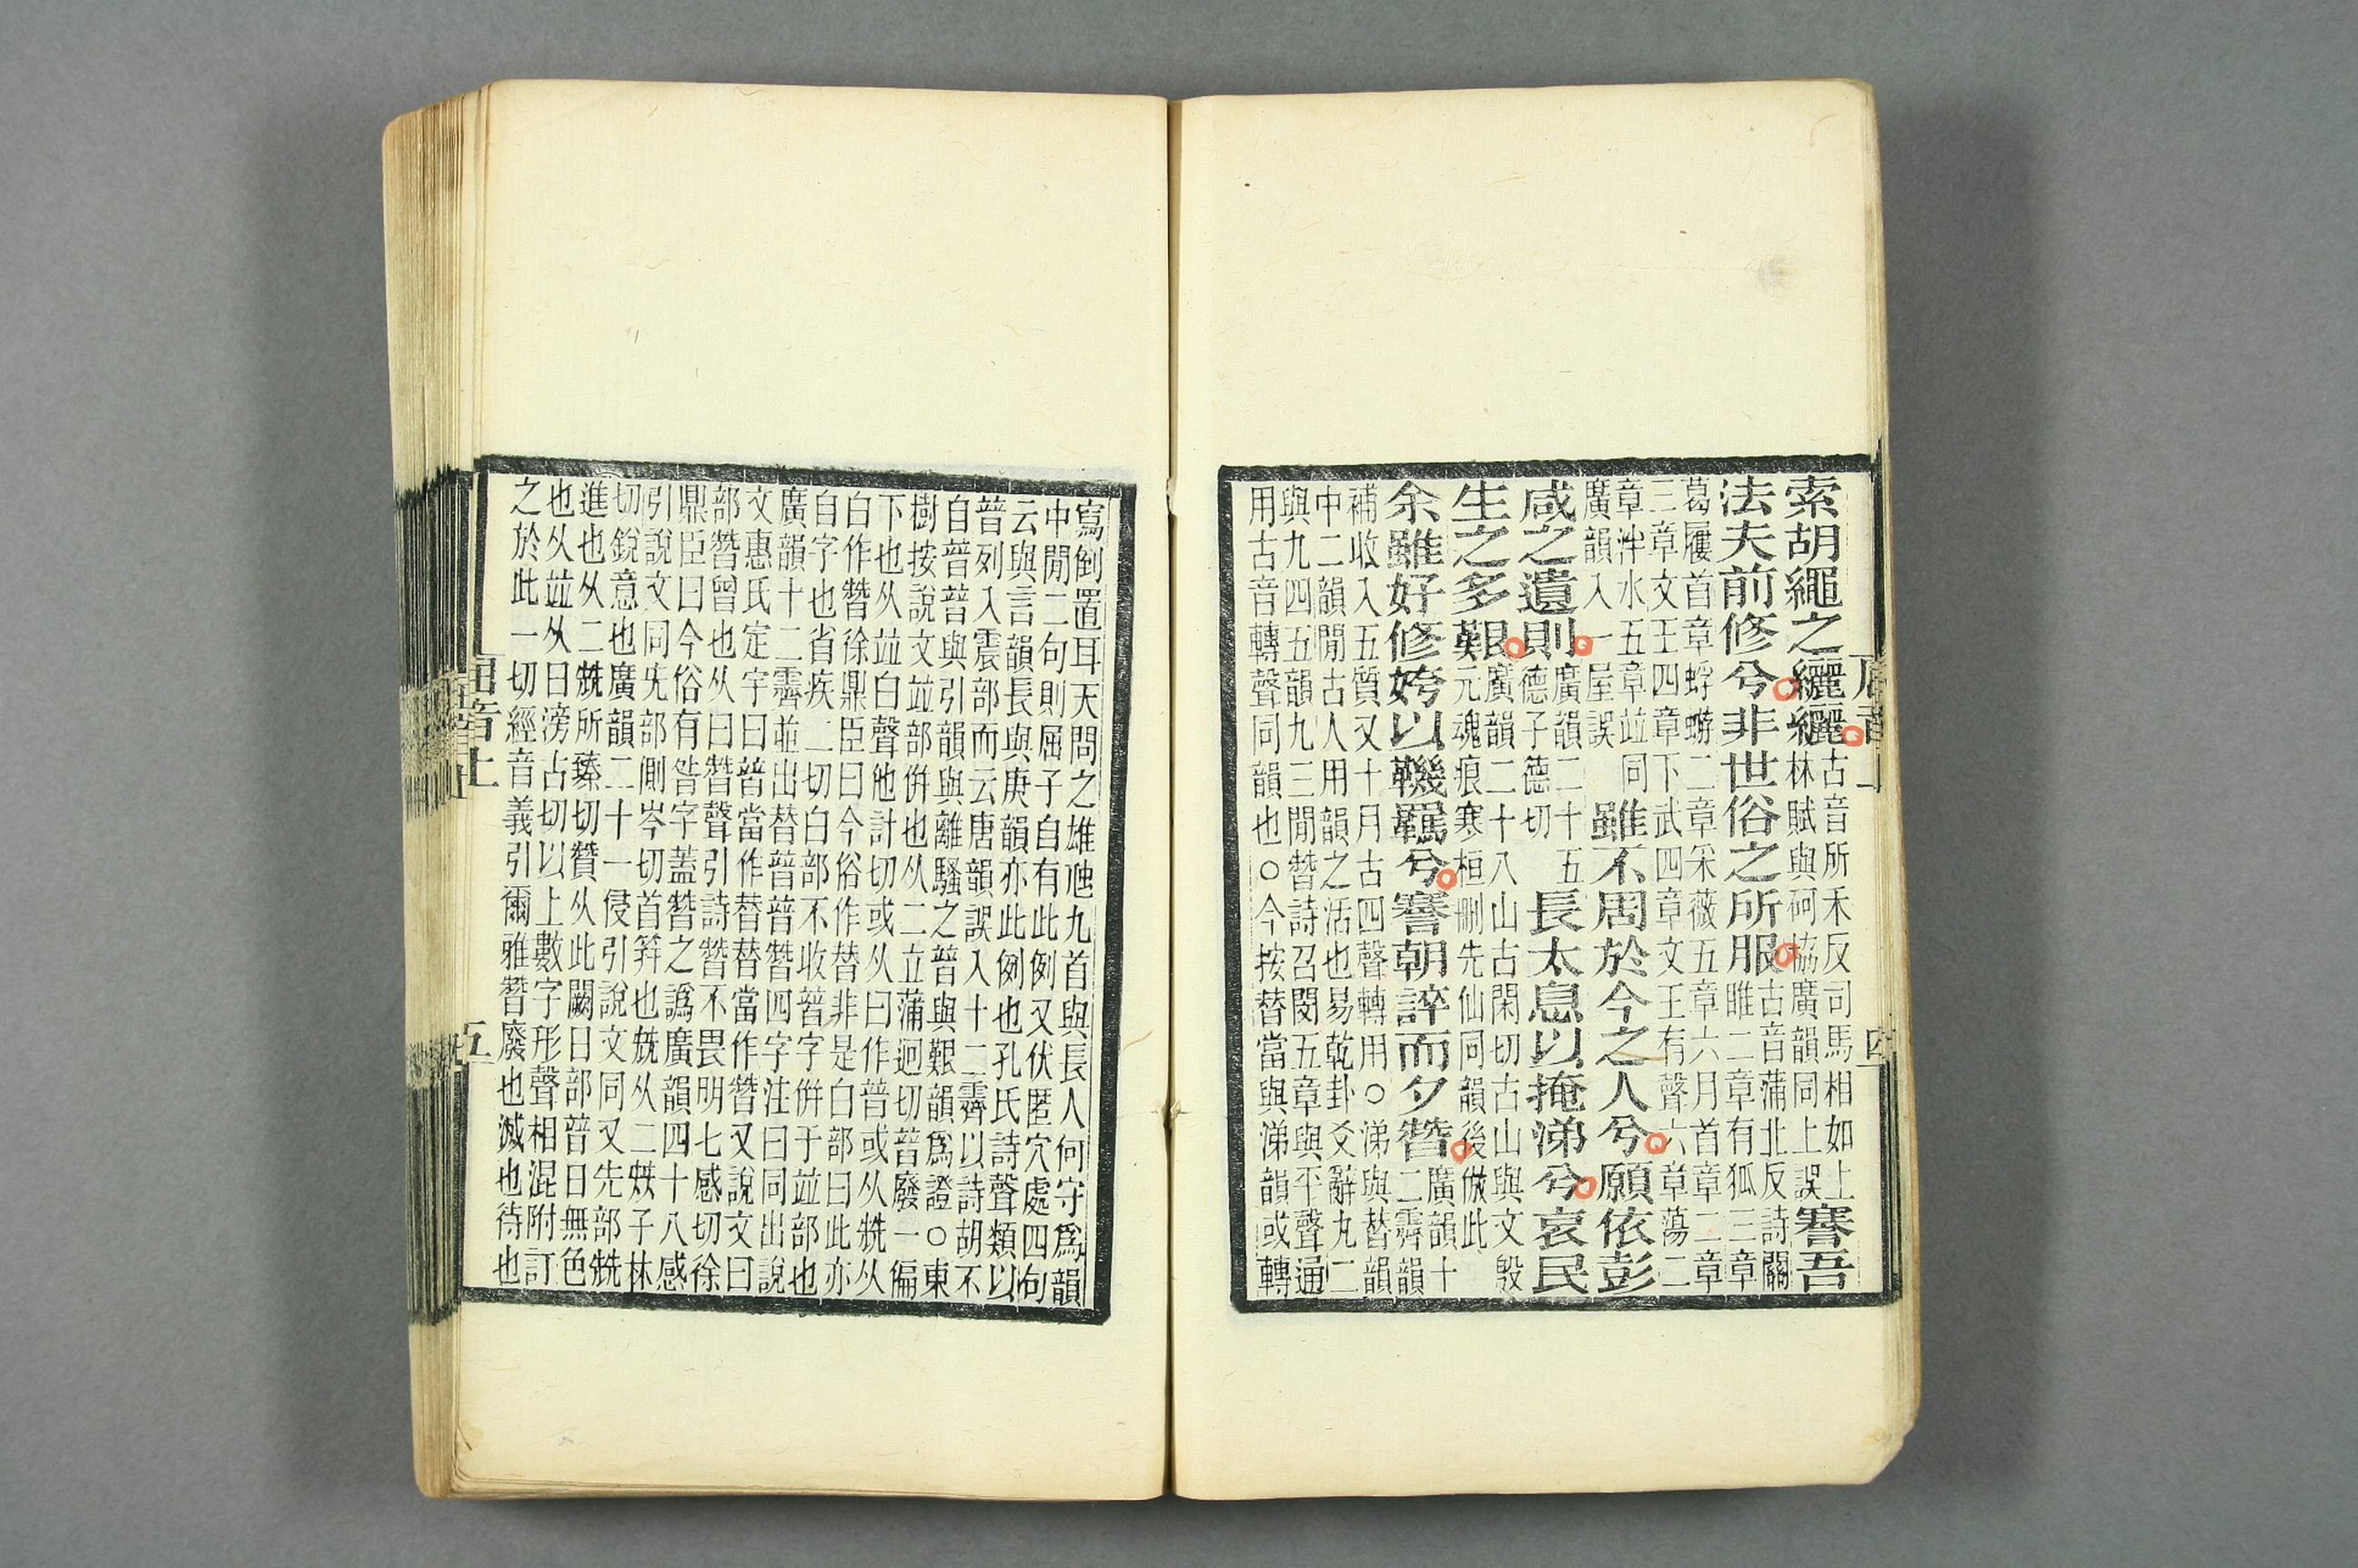 索胡繩之纚纚古音所禾反司馬相如上林賦與柯協廣韻同上誤謇吾
法夫前修兮非世俗之所服古音蒲北反詩關雎二章有狐三章
葛屨首章蜉蝣二章采薇五章六月首章二章
三章文王四章下武四章文王有聲六章蕩二
章泮水五章並同廣韻入一屋誤雖不周於今之人兮願依彭
咸之遺則廣韻二十五德子德切長太息以掩涕兮哀民
生之多艱廣韻二十八山古閑切古山與文殷元魂痕寒桓刪先仙同韻後倣此
余雖好修姱以鞿羈兮謇朝誶而夕朁廣韻十二霽韻
補收入五質又十月古四聲轉用○涕與替韻
中二韻閒古人用韻之活也易乾卦爻辭九二
與九四五韻九三閒朁詩召閔五章與平聲通
用古音轉聲同韻也○今按替當與涕韻或轉
屈音上
四
寫倒置耳天問之雄虺九首與長人何守爲韻
中閒二句則屈子自有此例又伏匿穴處四句
云與言韻長與庚韻亦此例也孔氏詩聲類以
朁列入震部而云唐韻誤入十二霽以詩胡不
自朁朁與引韻與離騷之朁與艱韻爲證○東
樹按說文竝部併也从二立蒲迥切朁廢一偏
下也从竝白聲他計切或从曰作朁或从兟从
白作朁徐鼎臣曰今俗作替非是白部曰此亦
自字也省疾二切白部不收朁字併于竝部也
廣韻十二霽並出替朁朁四字注曰同出說
文惠氏定宇曰普當作替替當作朁又說文曰
部朁曾也从曰朁聲引詩朁不畏明七感切徐
鼎臣曰今俗有昝字蓋朁之譌廣韻四十八感
引說文同兂部側岑切首筓也兓从二兂子林
切銳意也廣韻二十一侵引說文同又先部兟
進也从二兟所臻切贊从此闕日部普日無色
也从竝从日滂古切以上數字形聲相混附訂
之於此一切經音義引爾雅朁廢也滅也待也
屈音上
五